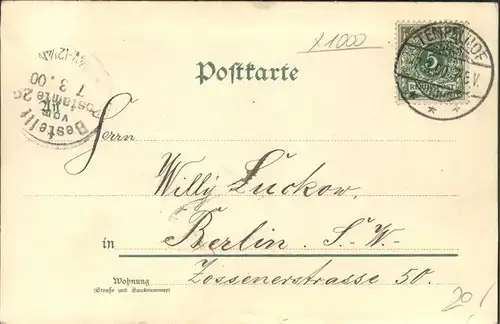 x 1000
Postkarte
TEMPELHOF
5
Bestellt
vom
Postamte
7 3. 00
An
Herrn
Willy Luckow.
in Berlin. S.-W.
Wohnung
(Straße und Hausnummer)
Zossenerstrasse 50.
20,